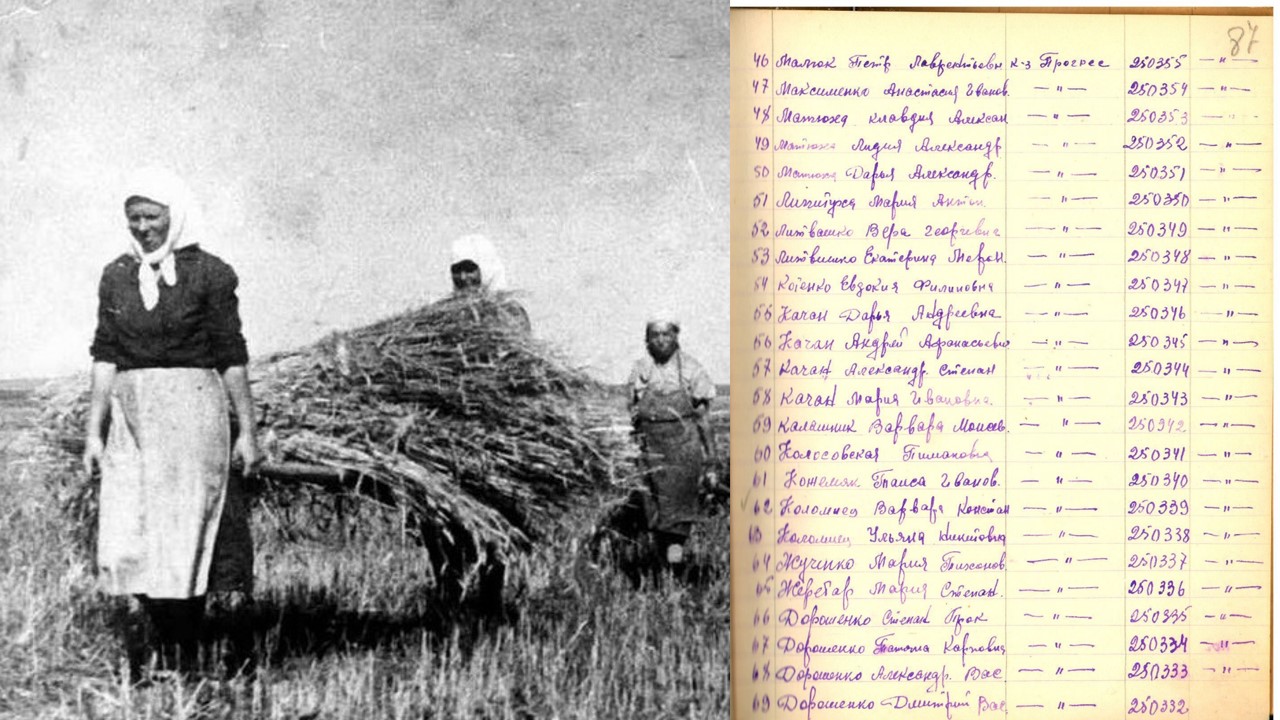 87
46 Малюк Петр Лаврентьевич к-з Прогрес 250355 — " —
47 Максименко Анастасия Иванов. — " — 250354 — " —
48 Матюха Клавдия Алексан — " — 250353 — " —
49 Матюха Лидия Александр — " — 250352 — " —
50 Матюха Дарья Александр. — " — 250351 — " —
51 Мария Антон. — " — 250350 — " —
52 Вера Георгиевна — " — 250349 — " —
53 Екатерина — " — 250348 — " —
54 Евдокия Филиповна — " — 250347 — " —
55 Качан Дарья Андреевна — " — 250346 — " —
56 Качан Андрей Афанасьевич — " — 250345 — " —
57 Качан Александр Степан — " — 250344 — " —
58 Качан Мария Ивановна. — " — 250343 — " —
59 Калашник Варвара Моисеев. — " — 250342 — " —
60 Колосовская — " — 250341 — " —
61 Кожемяк Таиса Иванов. — " — 250340 — " —
62 Коломиец Варвара Констан — " — 250339 — " —
63 Коломиец Ульяна Никитовна — " — 250338 — " —
64 Жученко Мария Тихонов — " — 250337 — " —
65 Жеребар Мария Степан. — " — 250336 — " —
66 Дорошенко Степан Прок — " — 250335 — " —
67 Дорошенко Татьяна Карповна — " — 250334 — " —
68 Дорошенко Александр. Вас — " — 250333 — " —
69 Дорошенко Дмитрий Вас — " — 250332